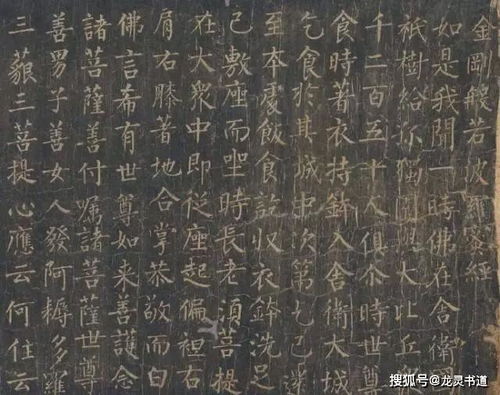 金剛般若波羅蜜經
如是我聞一時佛在舍衛國
祇樹給孤獨園與大比丘眾
千二百五十人俱尒時世尊
食時著衣持鉢入舍衛大城
乞食於其城中次第乞已還
至本處飯食訖收衣鉢洗足
已敷座而坐時長老湏菩提
在大衆中即從座起偏袒右
肩右膝著地合掌恭敬而白
佛言希有世尊如来善護念
諸菩薩善付囑諸菩薩世尊
善男子善女人發阿耨多羅
三藐三菩提心應云何住云
搜狐号@龙灵书道